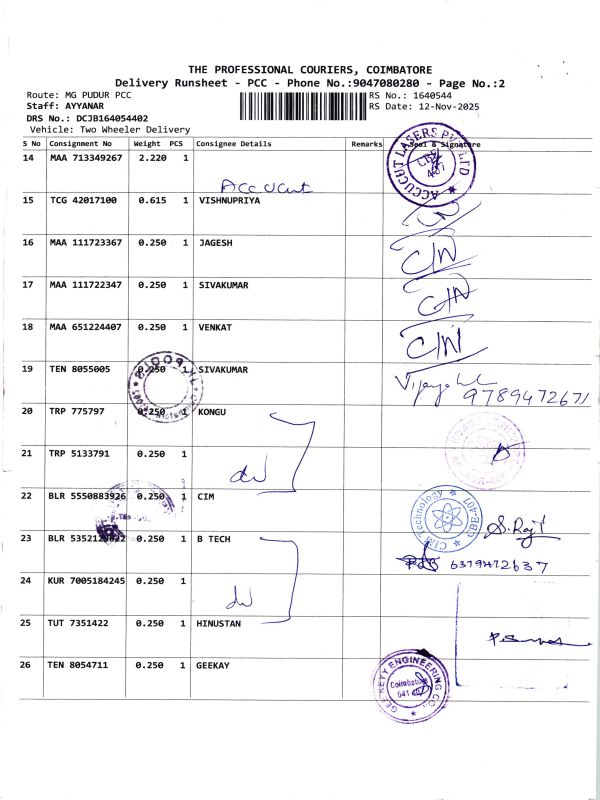 THE PROFESSIONAL COURIERS, COIMBATORE
Delivery Runsheet - PCC - Phone No.:9047080280 - Page No.:2
Route: MG PUDUR PCC RS No.: 1640544
Staff: AYYANAR RS Date: 12-Nov-2025
DRS No.: DCJB164054402
Vehicle: Two Wheeler Delivery
S No Consignment No Weight PCS Consignee Details Remarks Seal & Signature
14 MAA 713349267 2.220 1
ACCUCUT LASERS PVT LTD
Accucut
15 TCG 42017100 0.615 1 VISHNUPRIYA
16 MAA 111723367 0.250 1 JAGESH
17 MAA 111722347 0.250 1 SIVAKUMAR
18 MAA 651224407 0.250 1 VENKAT
19 TEN 8055005 0.250 1 SIVAKUMAR
9789472671
20 TRP 775797 0.250 1 KONGU
21 TRP 5133791 0.250 1
22 BLR 5550883926 0.250 1 CIM
CIM Technology
S. Raji
23 BLR 0.250 1 B TECH
6379472637
24 KUR 7005184245 0.250 1
25 TUT 7351422 0.250 1 HINUSTAN
26 TEN 8054711 0.250 1 GEEKAY
GEE KEYY ENGINEERING CO.
Coimbatore